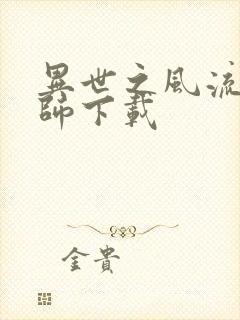 異世之風流
師下載
金貴